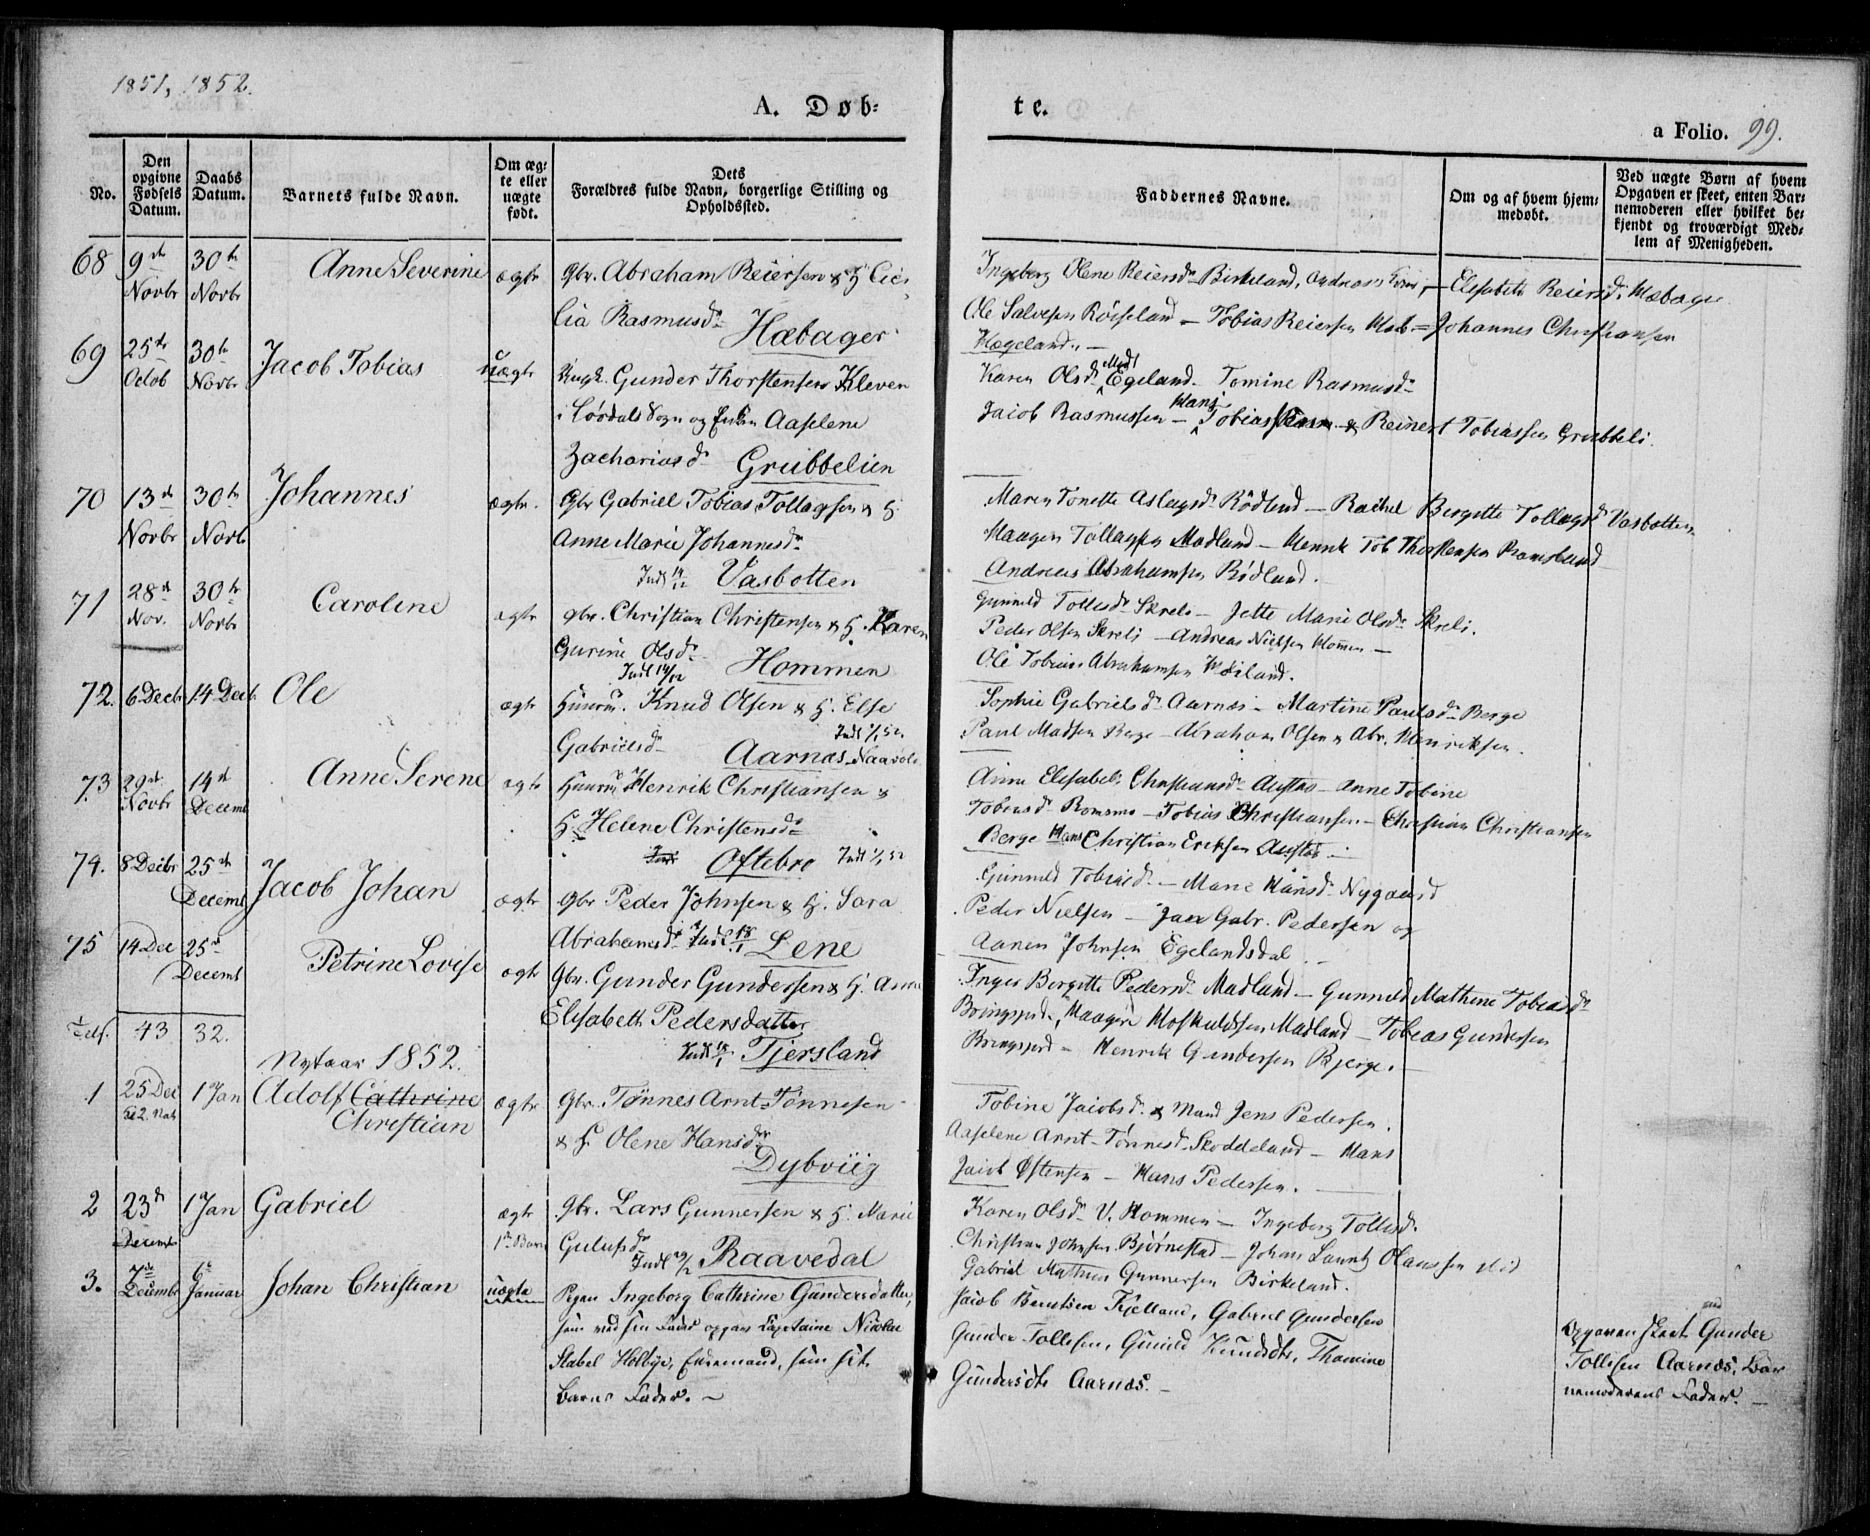 1851, 1852.
A. Døb-
te.
a Folio. 99.
No.
Den opgivne Fødsels Datum.
Daabs Datum.
Barnets fulde Navn.
Om æg-te eller uægte født.
Dets Forældres fulde Navn, borgerlige Stilling og Opholdssted.
Faddernes Navne.
Om og af hvem hjem-medøbt.
Ved uægte Børn af hvem Opgaven er skeet, enten Bar-nemoderen eller hvilket be-kjendt og troværdigt Med-lem af Menigheden.
68 9de Novbr 30te Novbr Anne Severine ægte Gbr. Abraham Reiersen & H. Cici-
lia Rasmusdr
Hæbager
Ingeborg Olene Reiersdr Birkeland, Elisabeth Reiersdr Hæbager
Ole Salvesen Röiseland – Tobias Reiersen Johannes Christiansen
Hægeland. –
69 25de Octob 30te Novbr Jacob Tobias Uægte Ungk. Gunder Thorstensen Kleven
i Sogn og Aaselene
Zachariasdr Grubbelien
Karen Olsdr Egeland. Tomine Rasmusdr
Jacob Rasmussen – Hans Tobias & Reinert Tobiassen Grubbeli.
70 13de Novbr 30te Novb Johannes ægte. Gbr Gabriel Tobias Tollagsen & H.
Anne Marie Johannesdr
Indl 14/12 Vasbotten
Maren Tonette Aslagsdr Rödland – Rachel Bergitte Tollagsdr Vasbotten
Haagen Tollagsen Madland – Henrik Tob Thorstensen
Andreas Abrahamsen Rödland.
71 28de Nov. 30te Novbr Caroline ægte gbr. Christian Christensen & H. Karen
Gurine Olsdr
Indl 14/12 Hommen
Gunnild Tollisdr Skreli – Jette Marie Olsdr Skreli.
Peder Olsen Skreli – Andreas Nielsen Hommen –
Ole Tobias Abrahamsen
72. 6 Decbr 14 Decb. Ole ægte Huusm. Knud Olsen & H. Else
Gabrielsdr
Indl 1/1 52
Aarnæs
Sophie Gabrielsdr Aarnæs – Martine Paulsdr Berge
Paul Madsen Berge – Abraham Olsen & Abr. Henriksen.
73 29de Novbr 14de Decemb Anne Serene ægte Huusm Henrik Christiansen &
H. Helene Christensdr
Indl Oftebro Indl 1/1 52
Anne Elisabet Christiansdr Austad – Anne Tobine
Tobiasdr – Tobias Christiansen. – Christian Christiansen
Berge Hans Christian Eriksen Austad –
74. 8 Decbr 25de Decemb Jacob Johan ægte Gbr Peder Johnsen & H. Sara
Abrahamsdr Indl 18/1 Lene
Gunnild Tobiasdr – Marie Hansdr Nygaard
Peder Nielsen – Gabr. Pedersen og
Aanen Johnsen Egelandsdal
75 14 Dec 25de Decemb Petrine Lovise ægte Gbr. Gunder Gundersen & H. Anne
Elisabeth Pedersdatter
Indl 18/1 Tjersland
Inger Bergitte Pedersdr Madland – Gunnild Mathine Tobiasdr
Bringsjord, Haagen Hoskuldsen Madland – Tobias Gundersen
Bringsjord – Henrik Gundersen Bjerge.
43 32.
Nytaar 1852.
1 25 Dec 1 Jan Adolf Cathrine
Christian ægte Gbr. Tønnes Arnt Tønnesen
& H Olene Hansdtr
Dybviig
Tobine Jacobsdr & Mand Jens Pedersen.
Aaselene Arnt-Tønnesdr Skoddeland – Hans
Jacob Østensen – Hans Pedersen.
2 23de Decemb 1 Jan Gabriel ægte gbr. Lars Gunnersen & H. Marie
Gulufsdr
Indl 29/2 Raavedal
Karen Olsdr V. Hommen – Ingeborg Tollisdr
Christian Johnsen Bjørnestad – Johan Olaussen
Gabriel Mathias Gunnersen Birkeland.
3. 7de Decembr 6te Januar Johan Christian uægte Pigen Ingeborg Cathrine Gundersdatter,
som ved sin Fader opgav Capitaine Nicolai
Stabel Holbye, Enkemand, som sit
Barns Fader. –
Jacob Berntsen Fjelland, Gabriel Gundersen
Gunder Tollesen, Gunild Knudsdtr, Thomine
Gundersdtr Aarnæs. –
Opgaven skeet ved Gunder
Tollesen Aarnæs, Bar
nemoderens Fader. –